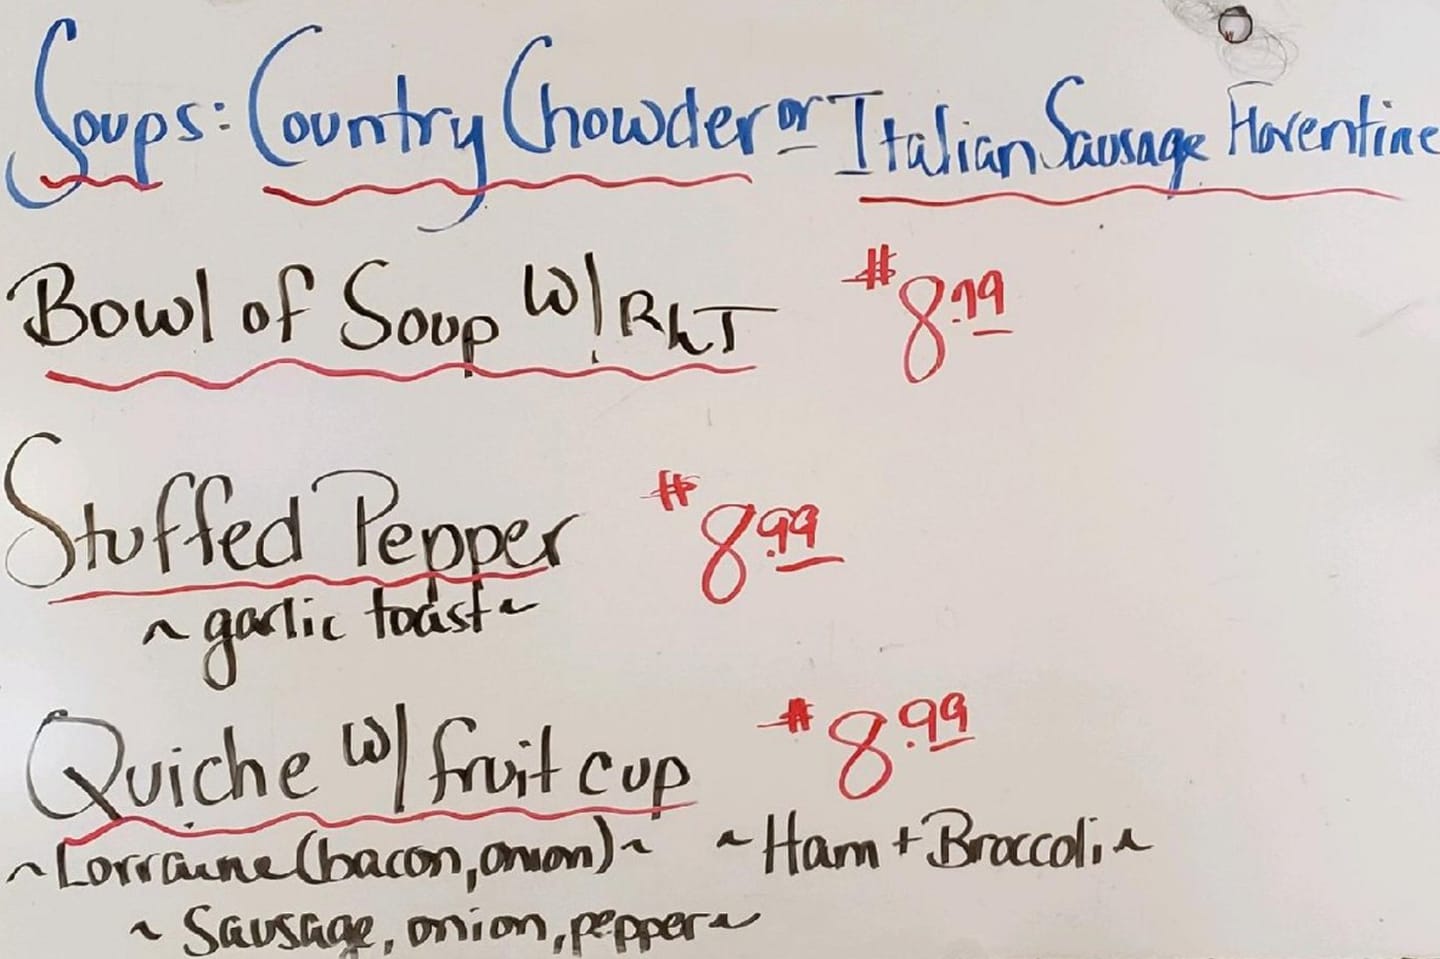 Soups: Country Chowder or Italian Sausage Florentine
Bowl of Soup w/ BLT $8.99
Stuffed Pepper $8.99
~ garlic toast ~
Quiche w/ fruit cup $8.99
~ Lorraine (bacon, onion) ~ ~ Ham + Broccoli ~
~ Sausage, onion, pepper ~